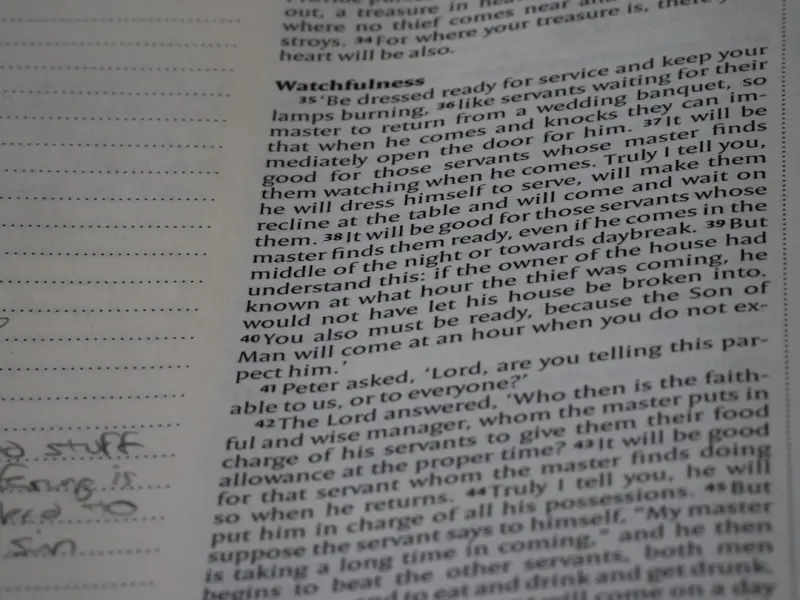 out, a treasure in
where no thief comes near and
stroys. 34 For where your treasure is,
heart will be also.
Watchfulness
35 'Be dressed ready for service and keep your
lamps burning, 36 like servants waiting for their
master to return from a wedding banquet, so
that when he comes and knocks they can im-
mediately open the door for him. 37 It will be
good for those servants whose master finds
them watching when he comes. Truly I tell you,
he will dress himself to serve, will make them
recline at the table and will come and wait on
them. 38 It will be good for those servants whose
master finds them ready, even if he comes in the
middle of the night or towards daybreak. 39 But
understand this: if the owner of the house had
known at what hour the thief was coming, he
would not have let his house be broken into.
40 You also must be ready, because the Son of
Man will come at an hour when you do not ex-
pect him.'
41 Peter asked, 'Lord, are you telling this par-
able to us, or to everyone?'
42 The Lord answered, 'Who then is the faith-
ful and wise manager, whom the master puts in
charge of his servants to give them their food
allowance at the proper time? 43 It will be good
for that servant whom the master finds doing
so when he returns. 44 Truly I tell you, he will
put him in charge of all his possessions. 45 But
suppose the servant says to himself, "My master
is taking a long time in coming," and he then
begins to beat the other servants, both men
and to eat and drink and get drunk.
will come on a day
stuff
is
to
sin